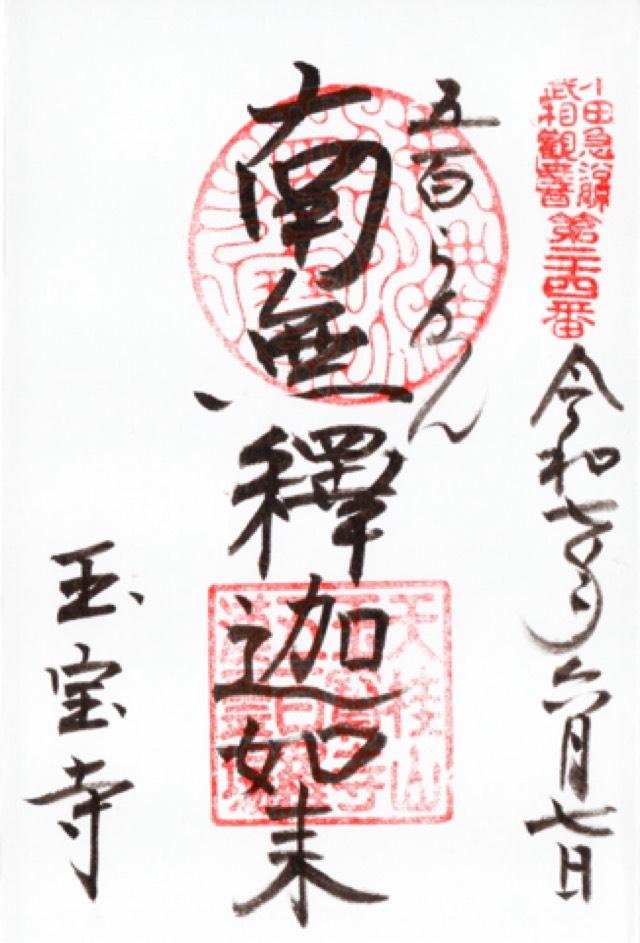 小田急沿線
武相観音
第三十四番
令和七年六月七日
五百らかん
南無釋迦如来
天桂山
玉宝寺